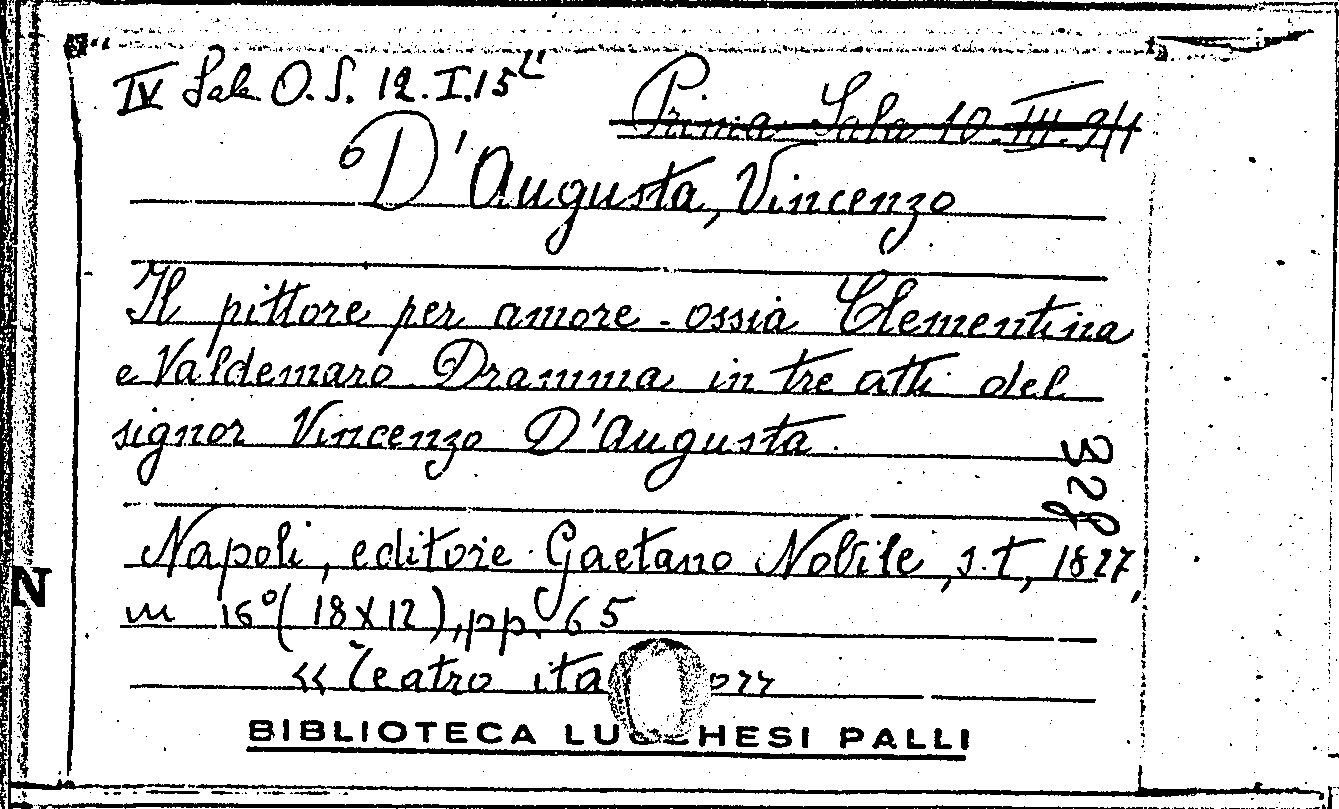 IV Sala O.S. 12.I.15
Prima Sala 10.III.24
D'Augusta, Vincenzo
Il pittore per amore - ossia Clementina
e Valdemaro Dramma in tre atti del
signor Vincenzo D'Augusta.
328
Napoli, editore Gaetano Nobile, s.t, 1827,
in 16°(18x12), pp. 65
«Teatro ita
BIBLIOTECA LUCCHESI PALLI
N